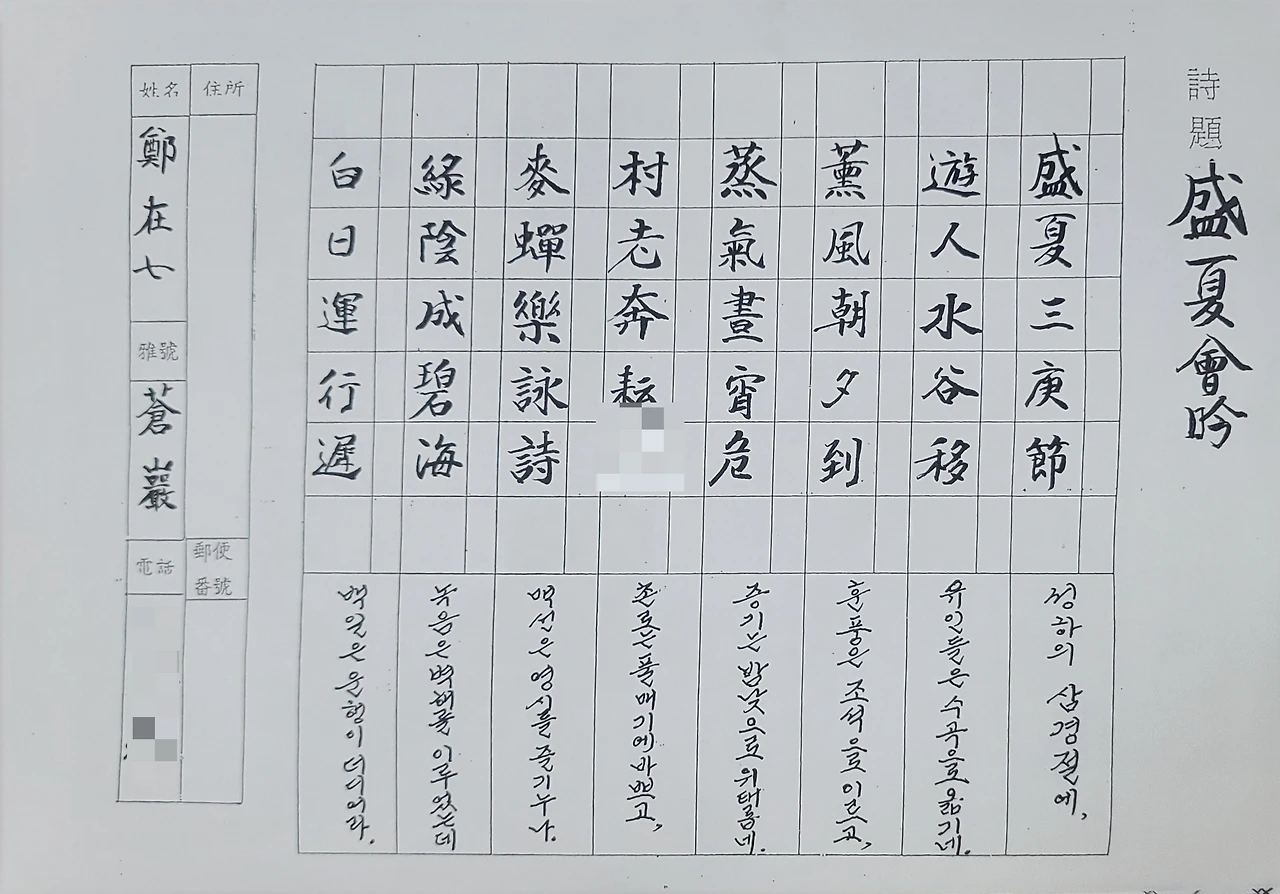 詩題 盛夏會吟
盛夏三庚節
遊人水谷移
薰風朝夕到
蒸氣晝宵危
村老奔耘
麥蟬樂詠詩
綠陰成碧海
白日運行遲
성하의 삼경절에,
유인들은 수곡으로 옮기네.
훈풍은 조석으로 이르고,
증기는 밤낮으로 위태롭네.
촌로는 풀매기에 바쁘고,
맥선은 영시를 즐기누나.
녹음은 벽해를 이루었는데
백일은 운행이 더디어라.
住所
郵便番號
姓名 鄭在七
雅號 蒼巖
電話